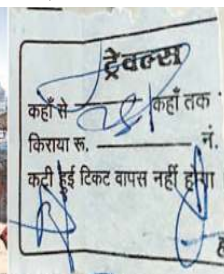 ट्रेवल्स
कहाँ से कहाँ तक
किराया रू. नं.
कटी हुई टिकट वापस नहीं होगा